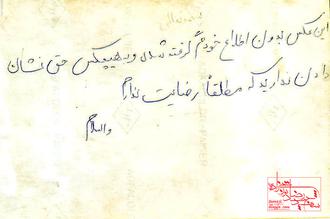 این عکس بدون اطلاع خودم گرفته شده و به هیچکس حق نشان
دادن ندارید که مطلقاً رضایت ندارم
والسلام